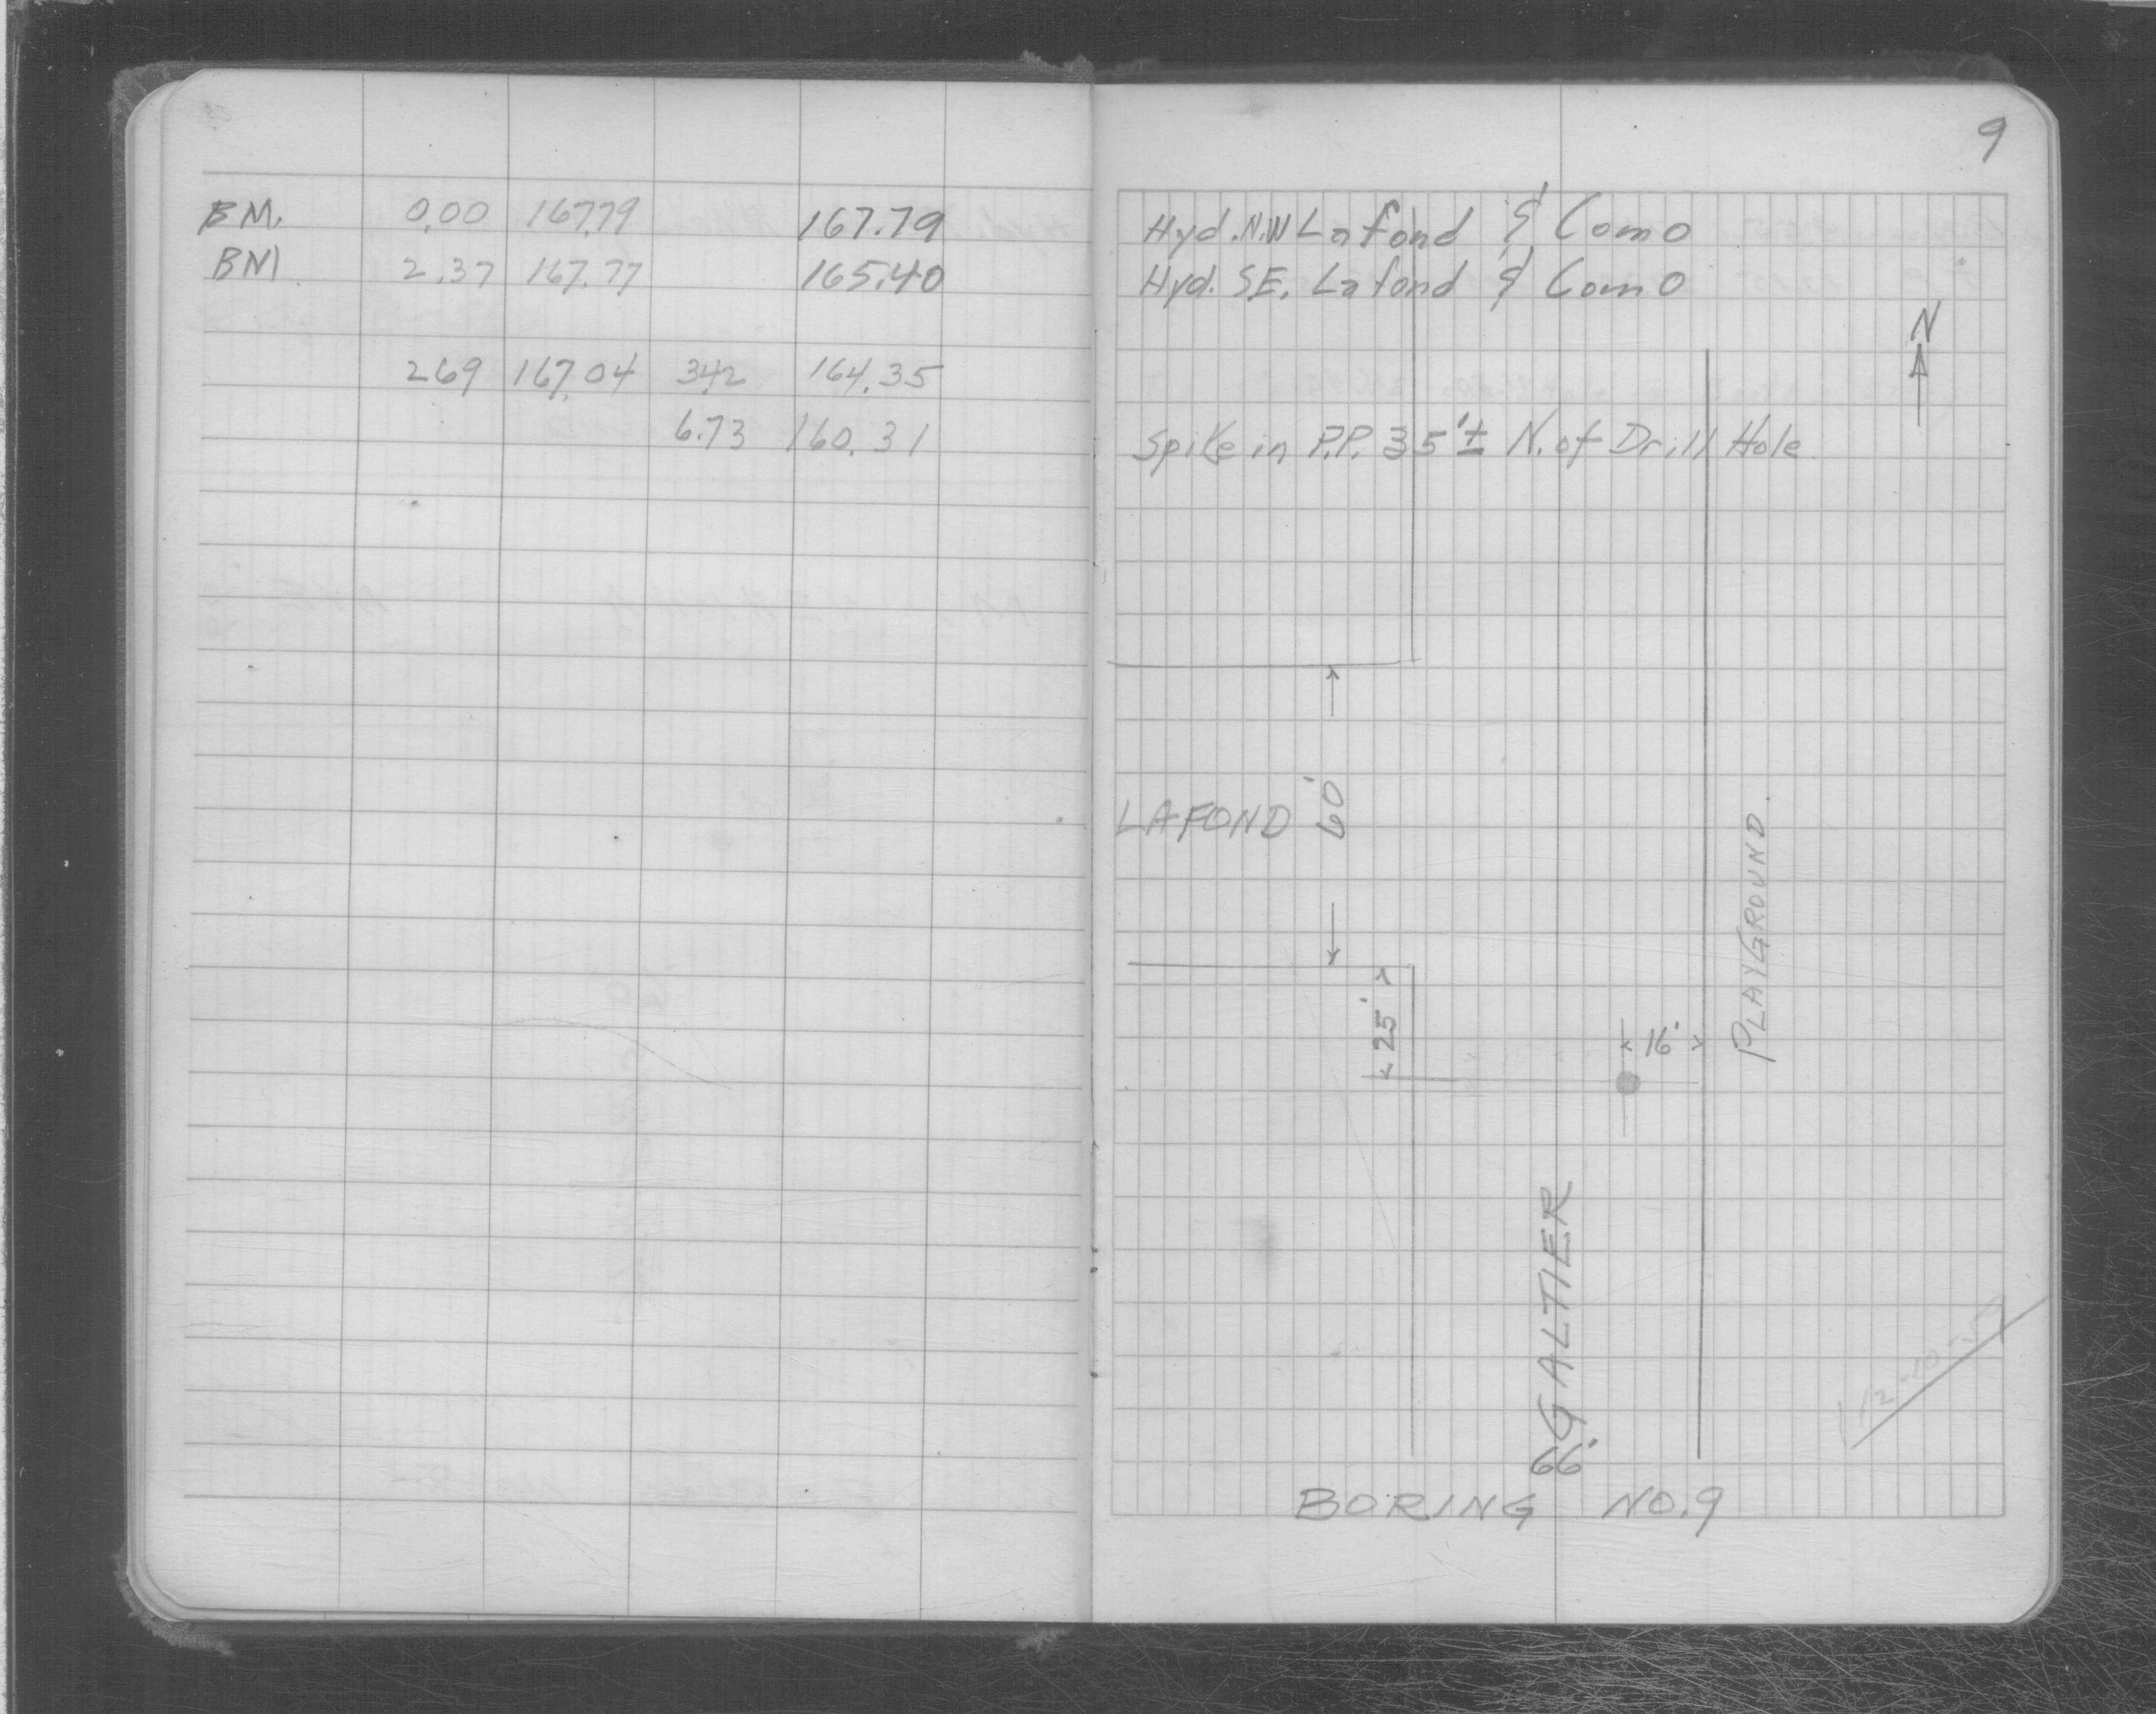 BM. 0.00 167.79 167.79
BM 2.37 167.77 165.40
2.69 167.04 3.42 164.35
6.73 160.31
9
Hyd. N.W Lafond & Como
Hyd. SE. Lafond & Como
N
Spike in P.P. 35'± N. of Drill Hole
LAFOND 60'
PLAYGROUND.
25'
16'
GALTIER
66'
BORING NO. 9